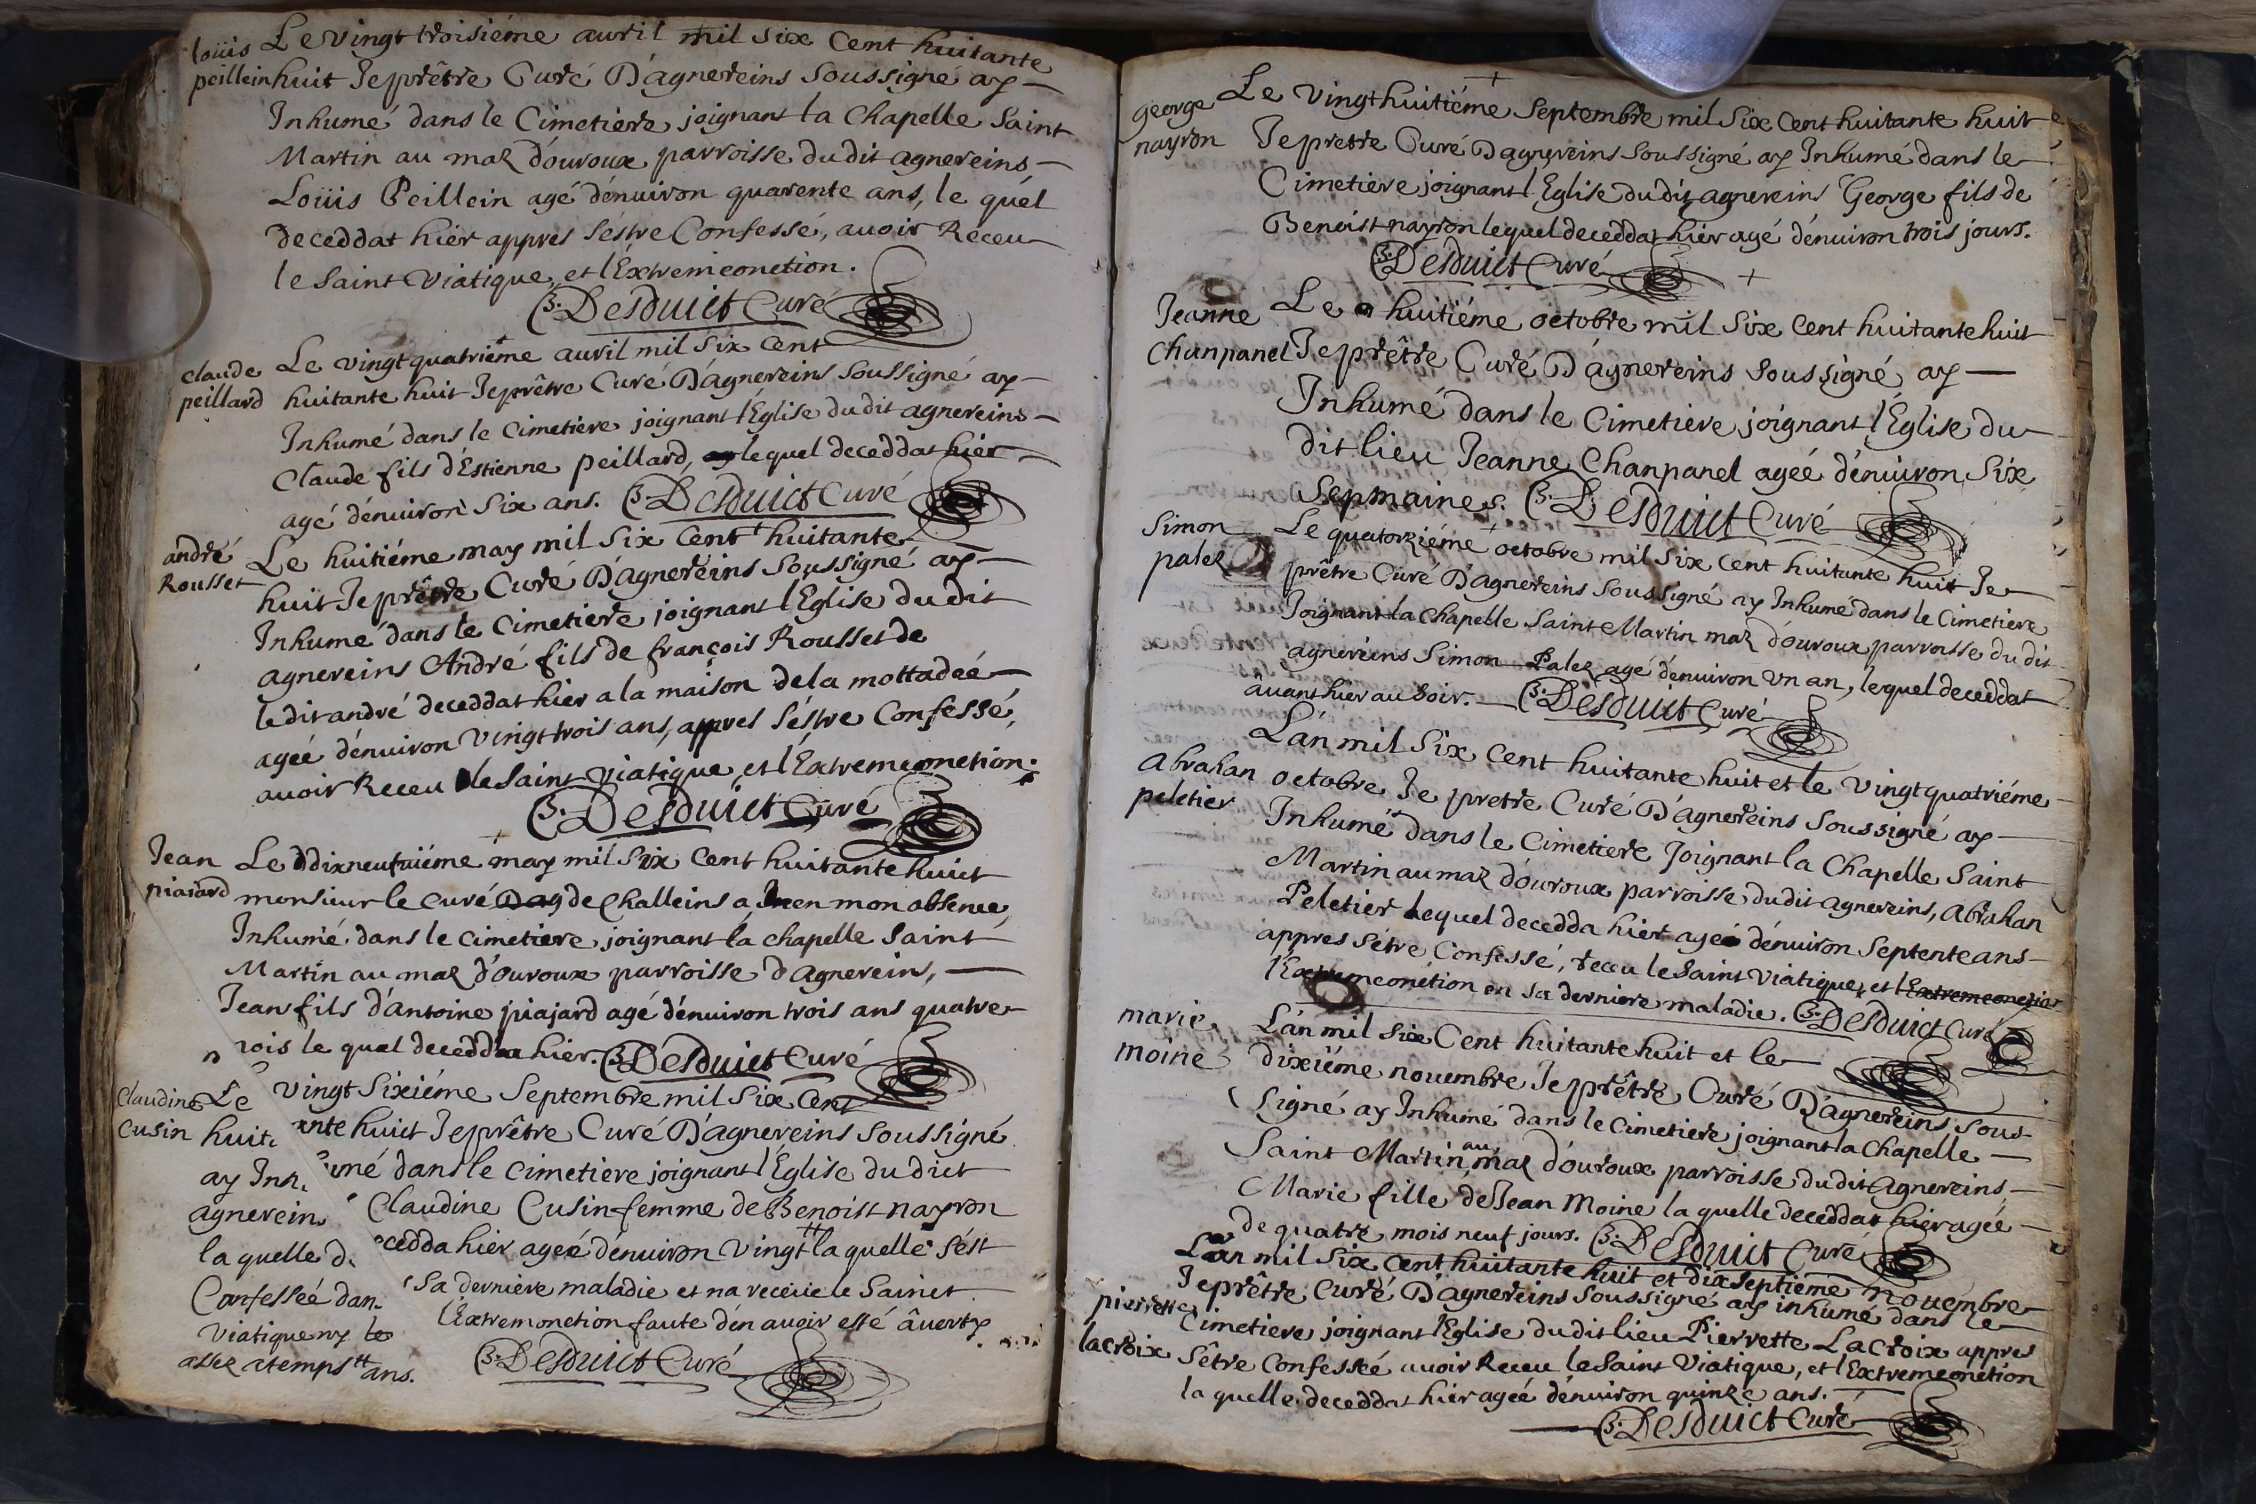 loüis
peillein
Le vingt troisiéme auril mil six Cent huitante
huit Je prêtre Curé D'agnereins soussigné ay
Inhumé dans le Cimetiere joignant la Chapelle saint
Martin au maz d'ouroux parroisse du dit agnereins
Loüis Peillein agé dénuiron quarente ans, le quél
deceddat hiér appres séstre Confessé, auoir Receu
le saint viatique, et l'Extremeonction.
B. Desduict Curé
claude
peillard
Le vingt quatriéme auril mil six cent
huitante huit Je prêtre Curé D'agnereins soussigné ay
Inhumé dans le Cimetiere joignant l'Eglise du dit agnereins
Claude fils d'Estienne peillard, lequel deceddat hier
agé dénuiron six ans. B. Desduict Curé
andré
Rousset
Le huitiéme may mil six Cent huitante
huit Je prêtre Curé D'agnereins soussigné ay
Inhumé dans le Cimetiere joignant l'Eglise du dit
agnereins André fils de françois Rousset de
le dit andré deceddat hier a la maison de la mottadeé
ageé dénuiron vingt trois ans, appres séstre Confessé,
auoir Receu le saint viatique, et l'Extremeonction.
B. Desduict Curé
Jean
piajard
Le dixneufuiéme may mil six Cent huitante huict
monsieur le Curé de Challeins a en mon absence,
Inhumé dans le cimetiere joignant la chapelle saint
Martin au maz d'ouroux parroisse d'agnereins,
Jean fils d'antoine piajard agé dénuiron trois ans quatre
rois le quel deceddat hier. B. Desduict Curé
Claudine
Cusin
Le vingt sixiéme septembre mil six Cent
huit. ante huict Je prêtre Curé D'agnereins soussigné
ay Inh. umé dans le cimetiere joignant l'Eglise du dict
agnereins Claudine Cusin femme de Benoist nayron
la quelle d. ecedda hier ageé dénuiron vingt la quelle s'est
Confesseé dan. sa derniere maladie et na receüe le sainct
viatique ny le l'Extremonction faute dén auoir esté âuerty
assez atemps ans. B. Desduict Curé
george
nayron
Le vingthuitiéme septembre mil six Cent huitante huit
Je prettre Curé D'agnereins soussigné ay Inhumé dans le
Cimetiere joignant l'Eglise du dit agnereins George fils de
Benoist nayron lequel deceddat hiér agé dénuiron trois jours.
B. Desduict Curé
Jeanne
Chanpanel
Le huitiéme octobre mil six Cent huitante huit
Je prêtre Curé D'agnereins soussigné ay
Inhumé dans le Cimetiere joignant l'Eglise du
dit lieu Jeanne Chanpanel ageé dénuiron six
sepmaines. B. Desduict Curé
Simon
palez
Le quatorziéme octobre mil six Cent huitante huit Je
prêtre Curé D'agnereins soussigné ay Inhumé dans le Cimetiere
Joignant la Chapelle saint Martin maz d'ouroux parroisse du dit
agnereins Simon Palez agé dénuiron vn an, lequel deceddat
âuant hier au soir. B. Desduict Curé
Abrahan
peletier
Lán mil six Cent huitante huit et le vingt quatriéme
octobre Je pretre Curé D'agnereins soussigné ay
Inhumé dans le Cimetiere Joignant la Chapelle saint
Martin au maz d'ouroux parroisse du dit agnereins, Abrahan
Peletier lequel decedda hiér ageé dénuiron septente ans
appres sétre Confessé, receu le saint viatique, et l'Extremeonction
l'Extremeonction en sa derniere maladie. B. Desduict Curé
marie
moine
Lán mil six Cent huitante huit et le
dixiéme nouembre Je prêtre Curé D'agnereins sous-
signé ay Inhumé dans le Cimetiere joignant la Chapelle
saint Martin au maz d'ouroux parroisse du dit Agnereins,
Marie fille de Jean Moine la quelle deceddat hier ageé
de quatre mois neuf jours. B. Desduict Curé
pierrette
lacroix
Lán mil six Cent huitante huit et dixseptiéme nouembre
Je prêtre Curé D'agnereins soussigné ay inhumé dans le
Cimetiere joignant l'Eglise du dit lieu Pierrette Lacroix appres
sêtre Confesseé auoir Receu le saint viatique, et l'Extremeonction
la quelle deceddat hier ageé dénuiron quinze ans.
B. Desduict Curé